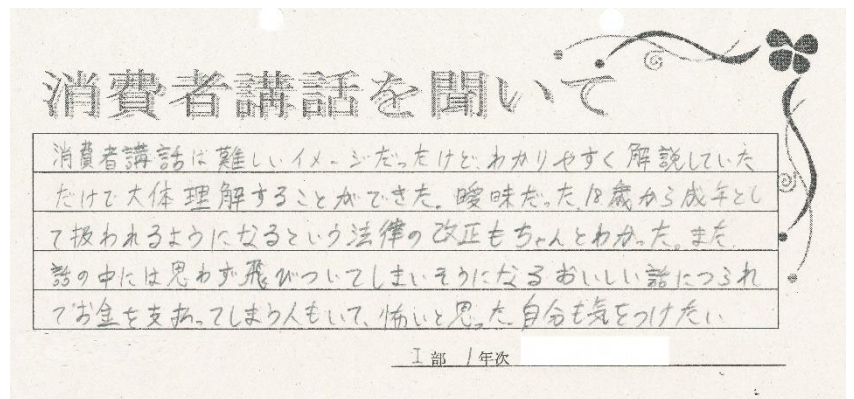 消費者講話を聞いて
消費者講話は難しいイメージだったけど、わかりやすく解説していた
だけで大体理解することができた。曖昧だった、18歳から成年とし
て扱われるようになるという法律の改正もちゃんとわかった。また、
話の中には思わず飛びついてしまいそうになるおいしい話につられ
てお金を支払ってしまう人もいて、怖いと思った。自分も気をつけたい
I部 1年次